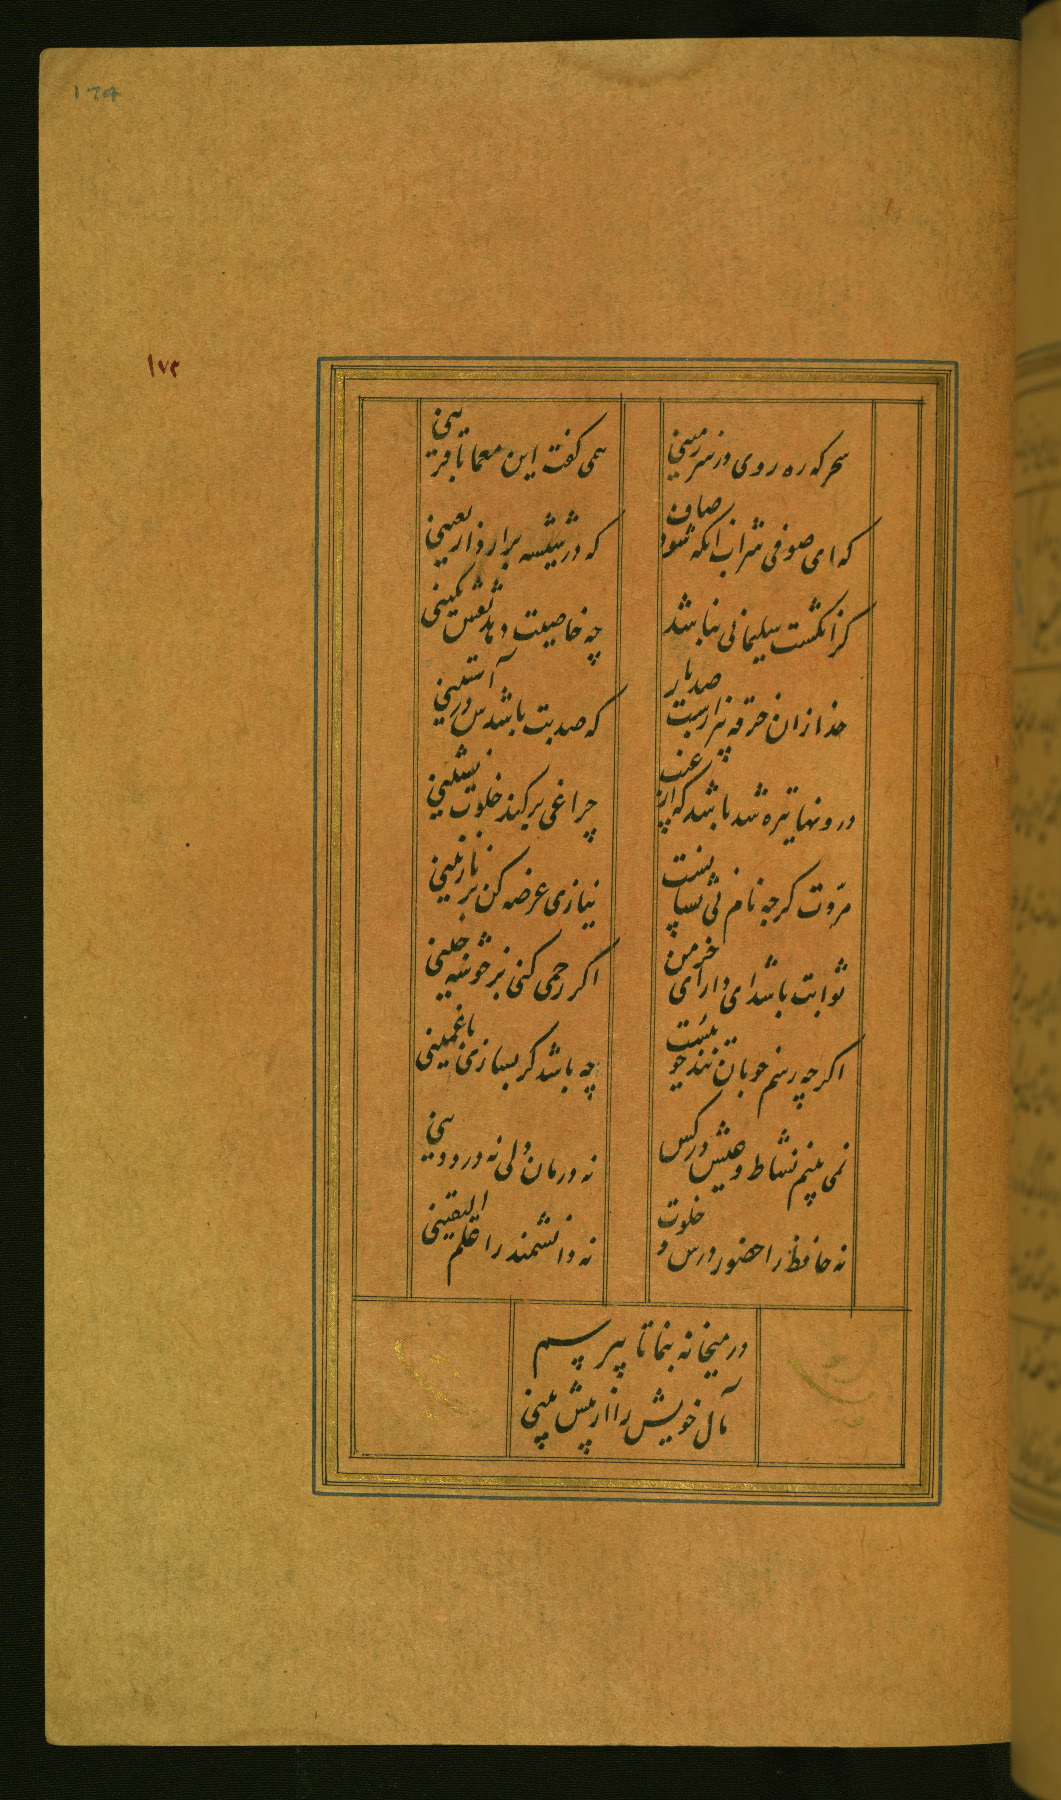 174
۱۷۳
سحرکه ره روی در سرزمینی
همی کفت این معما با قرینی
که ای صوفی شراب انکه شود صاف
که در شیشه برارد اربعینی
کر انکشت سلیمانی نباشد
چه خاصیت دهد نقش نکینی
خدا زان خرقه بیزارست صد بار
که صد بت باشدش در آستینی
درونها تیره شد باشد که از غیب
چراغی بر کند خلوت نشینی
مروت کرچه نامی بی نشانست
نیازی عرضه کن بر نازنینی
ثوابت باشد ای دارای خرمن
اکر رحمی کنی بر خوشه چینی
اکرچه رسم خوبان تندخوییست
چه باشد کر بسازی با غمینی
نمی بینم نشاط و عیش در کس
نه درمان دلی نه درد دینی
نه حافظ را حضور درس و خلوت
نه دانشمند را علم الیقینی
در میخانه بنما تا بپرسم
مآل خویش را از پیش بینی